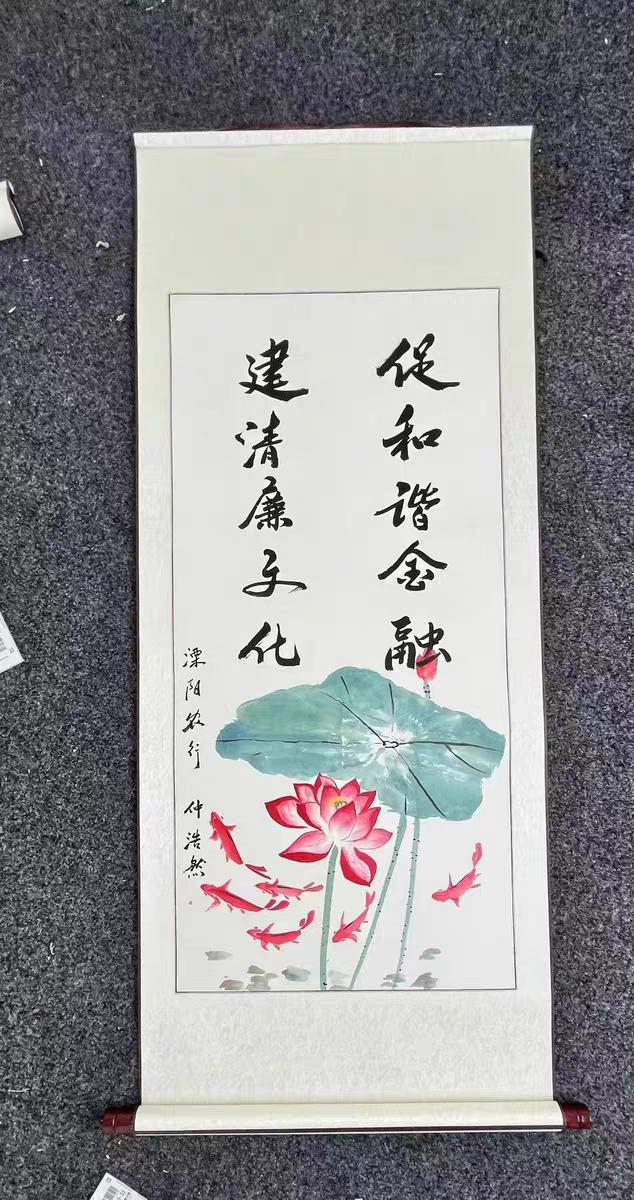 促和谐金融
建清廉文化
溧阳农行 仲浩然